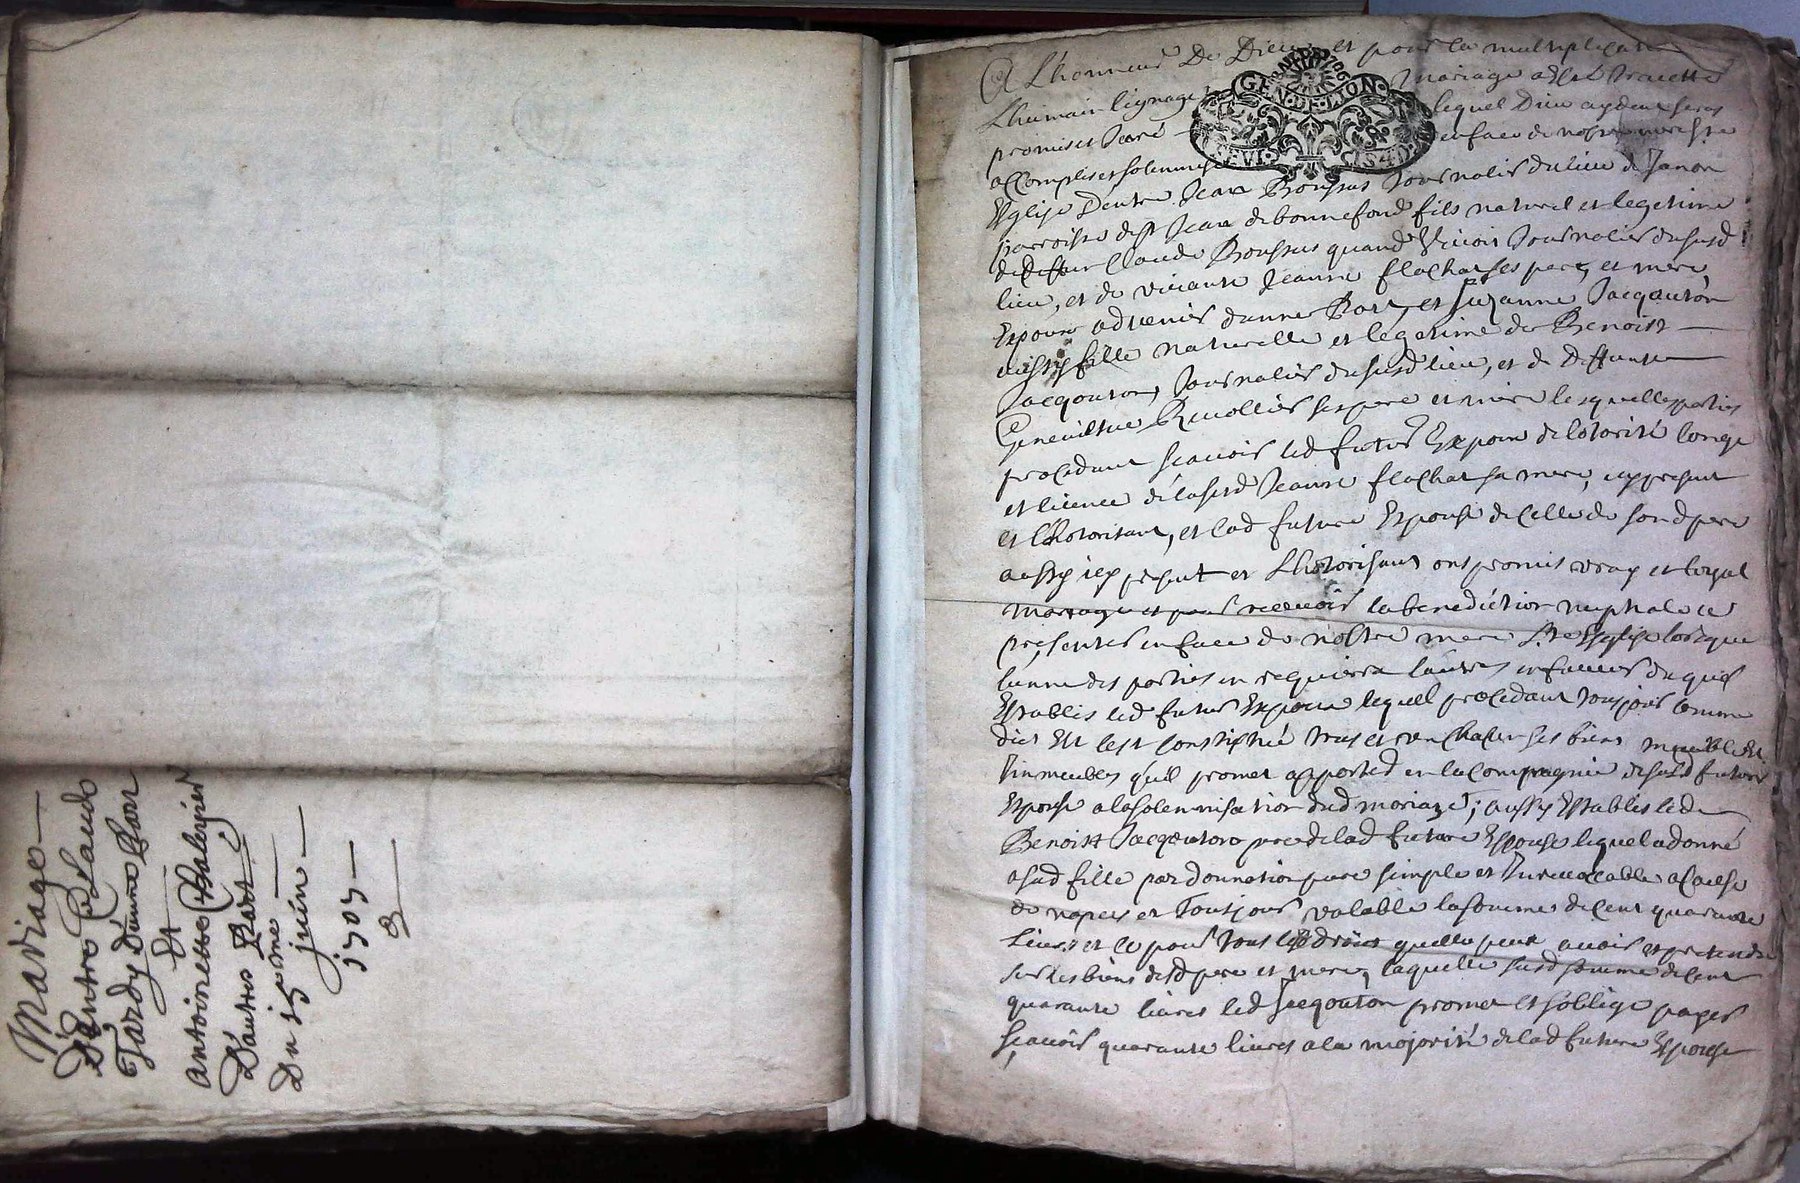 Mariage
D'Entre Claude
Tardy d'unne Part
Et
Antoinette Chaleyer
D'autres Part
Du 15eme
juin
1705
A Lhonneur De Dieu et pour la multiplication
Lhumain lignage mariage a Esté traitté
promis et Juré lequel Dieu aydant seras
accomplis et solemnisé en face de nostre mere Ste
Eglise Dentre Jean Boussus Journalier du lieu de Janon
parroisse de St Jean de bonnefond fils naturel et legetime
de deffun Claude Boussus quand Vivoit Journalier du susd
lieu, et de vivante Jeanne flachat ses pere et mere
Expoux advenir dunne Part, et Suzanne Jacqouton
aussy fille naturelle et legetime de Benoist
Jacqouton, Journalier du susd lieu, et de deffunte
Geneviefve Rivollier ses pere et mere lesquelles parties
procedant sçavoir led futur Expoux de lotorité congé
et licence de lasusd Jeanne flachat sa mere, icy present
et Lhotorisant, et lad future Expouse de celle de sond pere
aussy icy present et Lhotorisant ont promis vray et loyal
mariage et pour recevoir la benediction nuptiale ce
presenter en face de nostre mere Ste Esglise lorsque
lunne des parties en requierra lautre en faveur du quel
Establis led futur Expoux lequel procedant tousjours comme
dict Est cest constitué tous et un chacun ses biens meubles Et
Immeubles quil promet apporter en la compagnie de sad future
Expouse a la solemnisation dud mariage; aussy Establis led
Benoist Jacqouton pere de lad future Expouse lequel a donné
a sad fille par donnation pure simple et Irrevocable a cause
de nopces et Tousjours valable la somme de cent quarante
Livres et ce pour tous les droits quelle peut avoir et pretendre
sur les biens desd pere et mere, laquelle susd somme de cent
quarante livres led Jacqouton promet et soblige payer
sçavoir quarante livres a la majorité de lad future Expouse
GEN·DE·LION